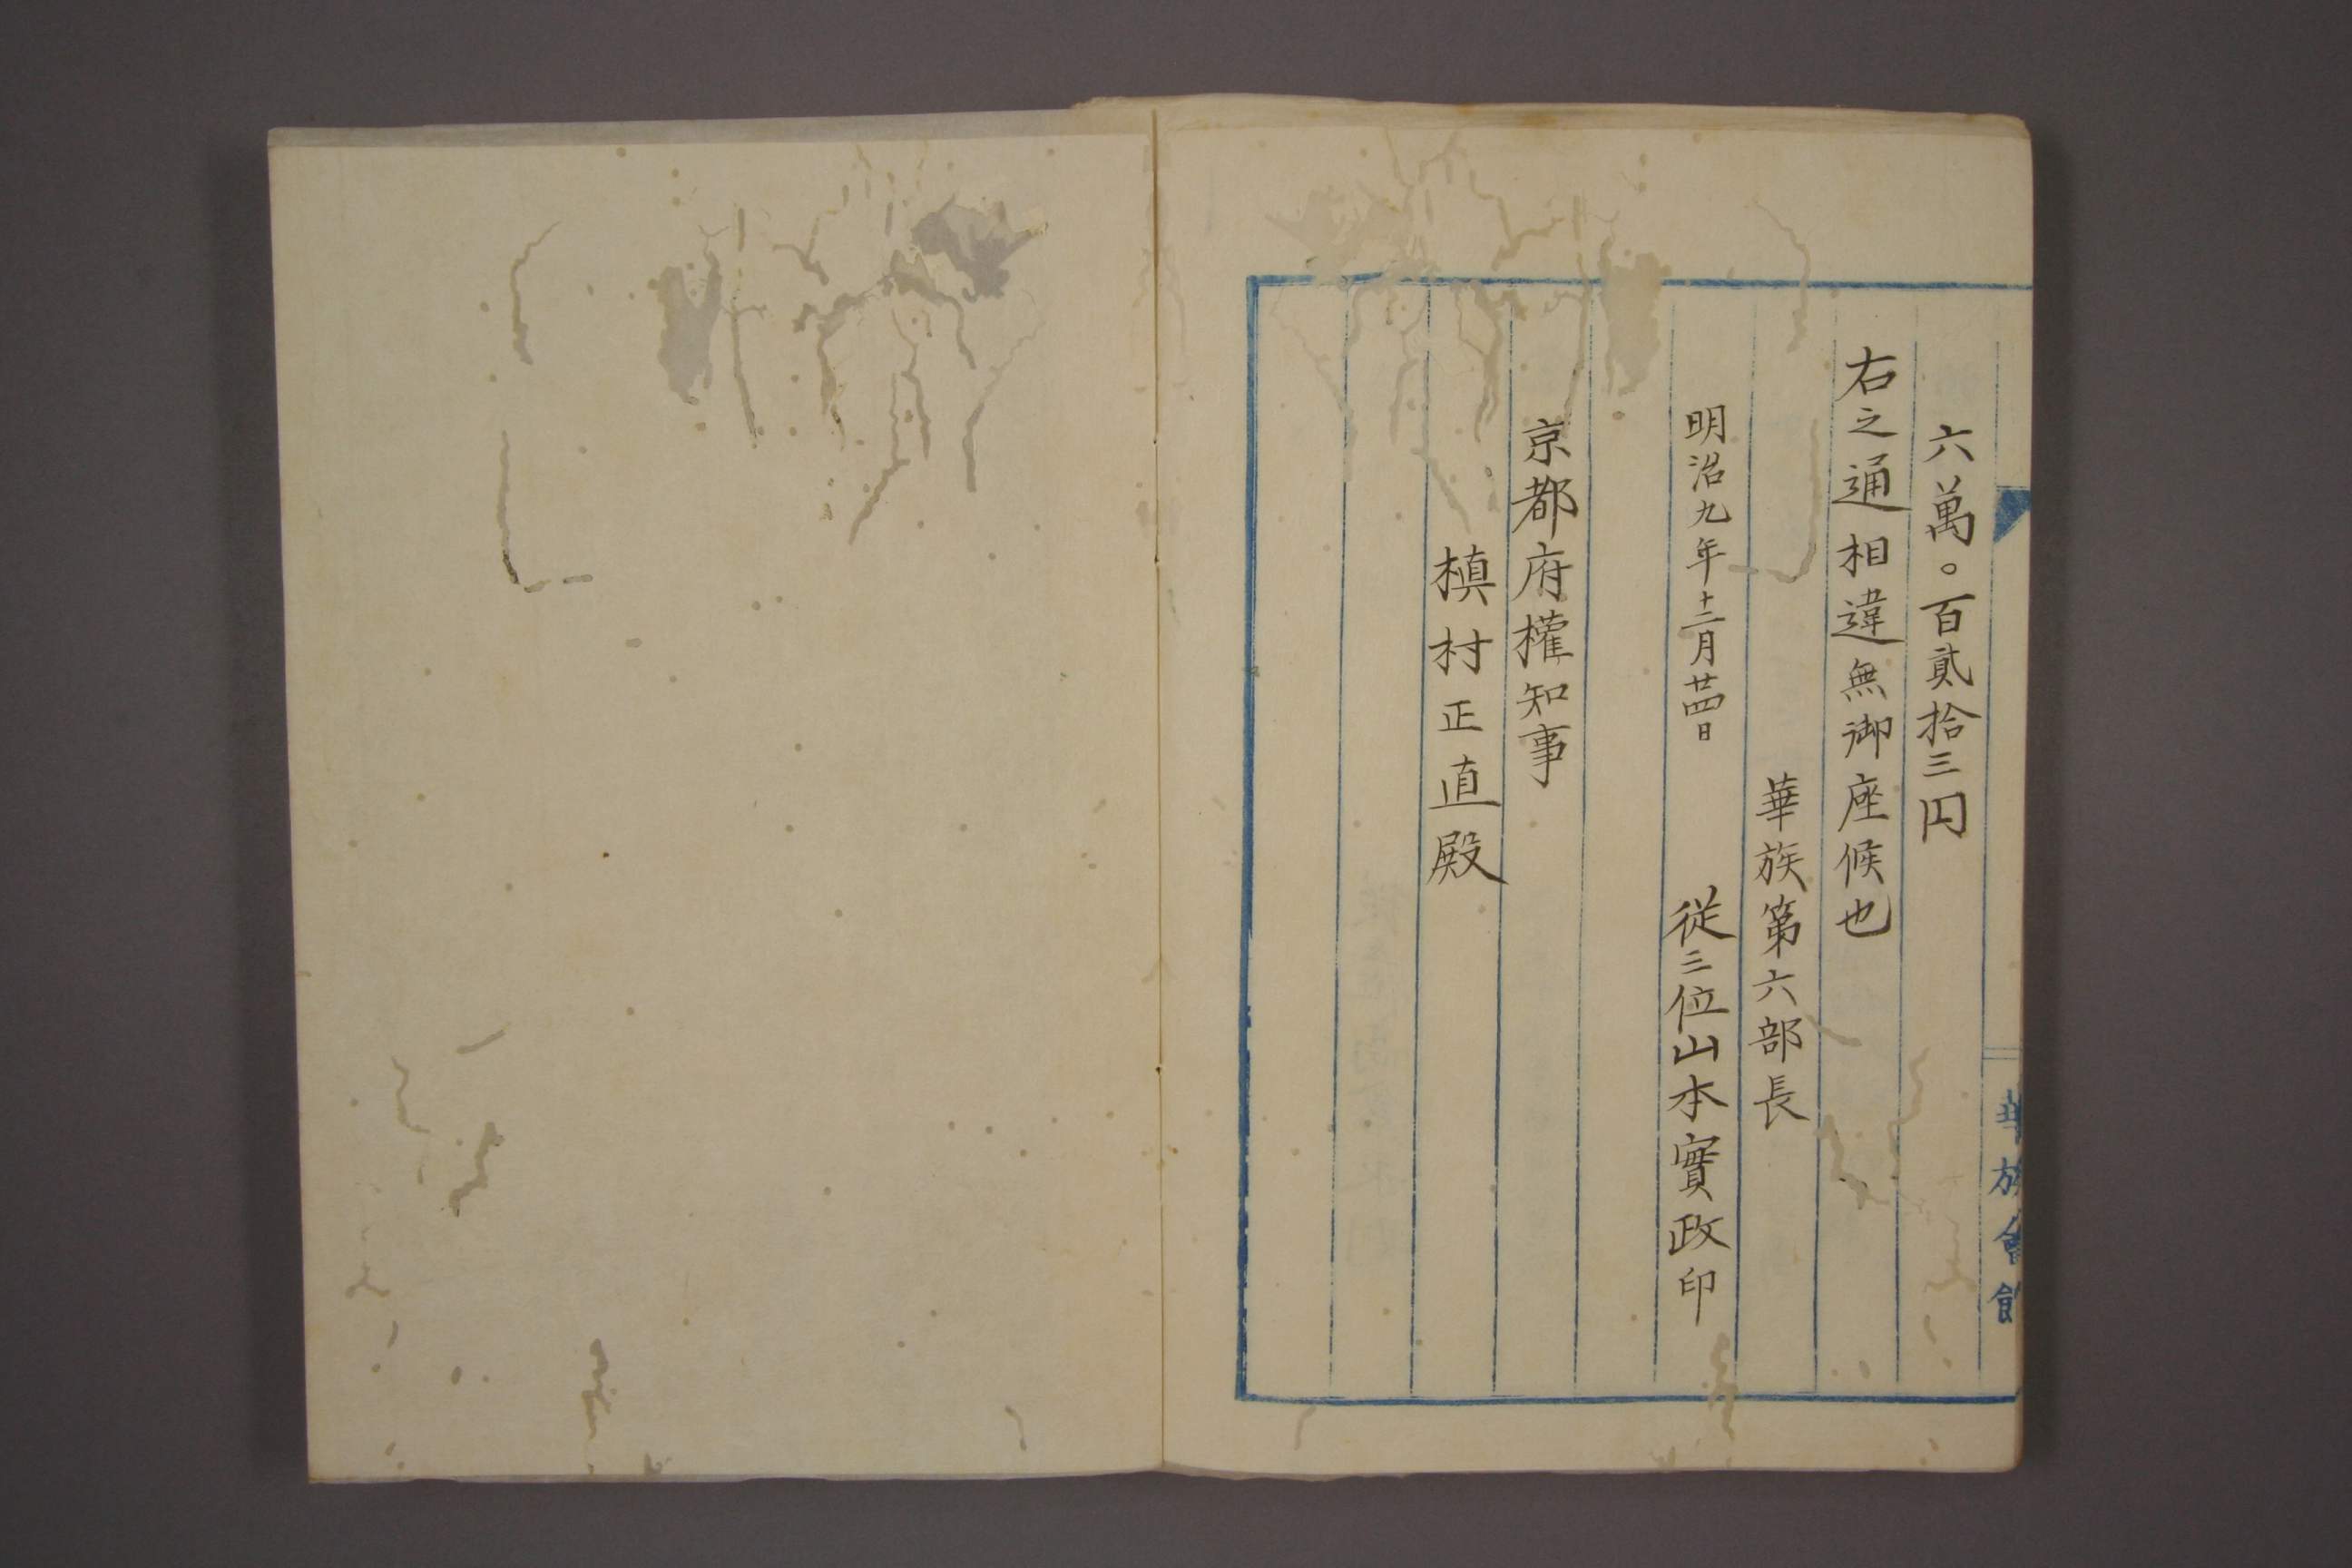 六萬。百貳拾三円
右之通相違無御座候也
華族第六部長
明治九年十二月廿四日 従三位山本實政印
京都府權知事
槙村正直殿
華族會館